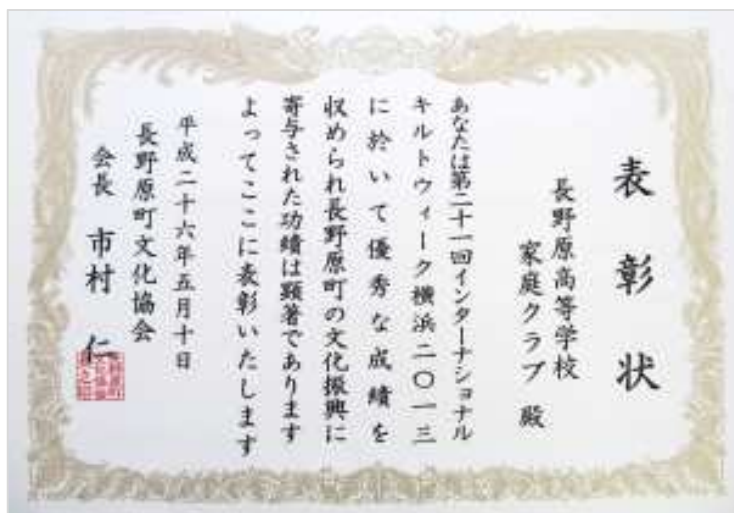 表彰状
長野原高等学校
家庭クラブ 殿
あなたは第二十一回インターナショナル
キルトウィーク横浜二〇一三
に於いて優秀な成績を
収められ長野原町の文化振興に
寄与された功績は顕著であります
よってここに表彰いたします
平成二十六年五月十日
長野原町文化協会
会長 市村 仁